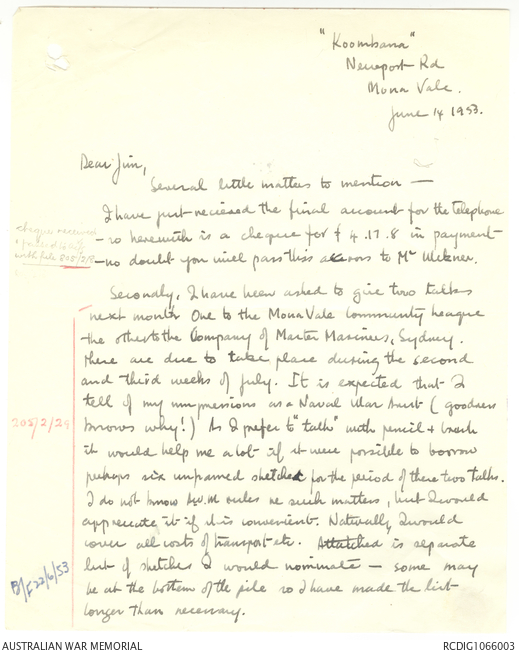 "Koombana"
Newport Rd
Mona Vale.
June 14 1953.
Dear Jim,
Several little matters to mention —
I have just recieved the final account for the telephone
– so herewith is a cheque for £ 4.17.8 in payment
– no doubt you will pass this across to Mr
Secondly, I have been asked to give two talks
next month. One to the Mona Vale Community League
the other to the Company of Master Mariners, Sydney.
These are due to take place during the second
and third weeks of July. It is expected that I
tell of my impressions as a Naval War Artist (goodness
knows why!) As I prefer to "talk" with pencil & brush
it would help me a lot if it were possible to borrow
perhaps six unframed sketches for the period of these two talks.
I do not know A.W.M rules re such matters, but I would
appreciate it if it is convenient. Naturally I would
cover all costs of transport etc. Attatched is separate
list of sketches I would nominate – some may
be at the bottom of the pile so I have made the list
longer than necessary.
cheque received
with file 205/2/
205/2/29
B/F 22/6/53
AUSTRALIAN WAR MEMORIAL
RCDIG1066003